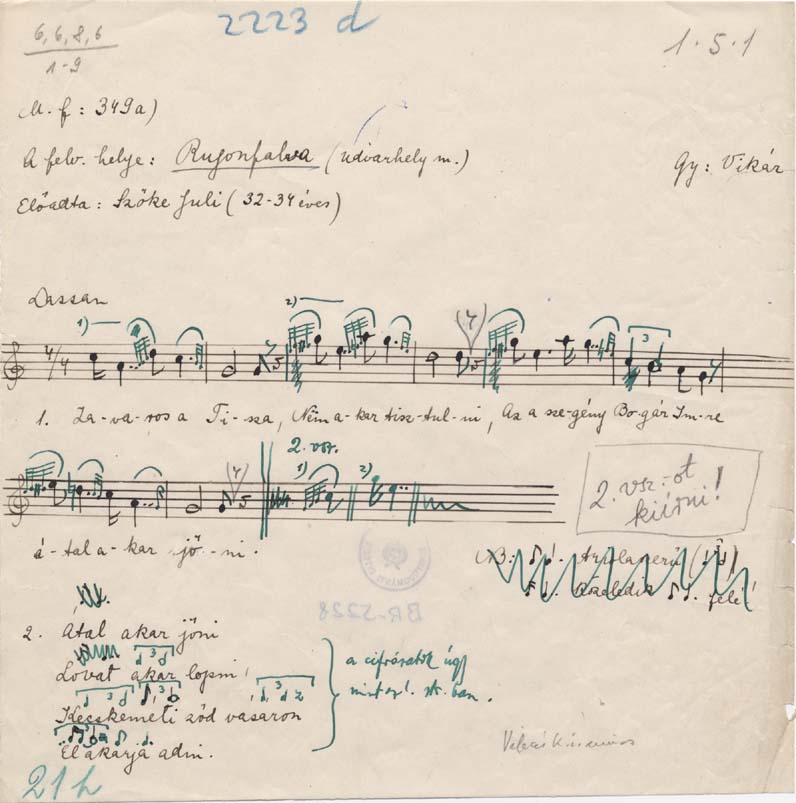 6, 6, 8, 6
1-9
2223 d
1 · 5 · 1
M. f: 349a)
A felv. helye: Rugonfalva (Udvarhely m.)
Gy: Vikár
Előadta: Szőke Juli (32-34 éves)
Lassan
1)
2)
(7)
4/4
3
1. Za-va-ros a Ti-sza, Nem a-kar tisz-tul-ni, Az a sze-gény Bo-gár Im-re
2. vsz.
1)
2)
(7)
2. vsz.-ot
kiírni!
á-tal a-kar jő-ni.
NB:
felé
BR-2228
2. Átal akar jőni
Lovat akar lopni
Kecskeméti ződ vásáron
El akarja adni.
a cifrázatok úgy
mint az 1. str. ban.
21 h